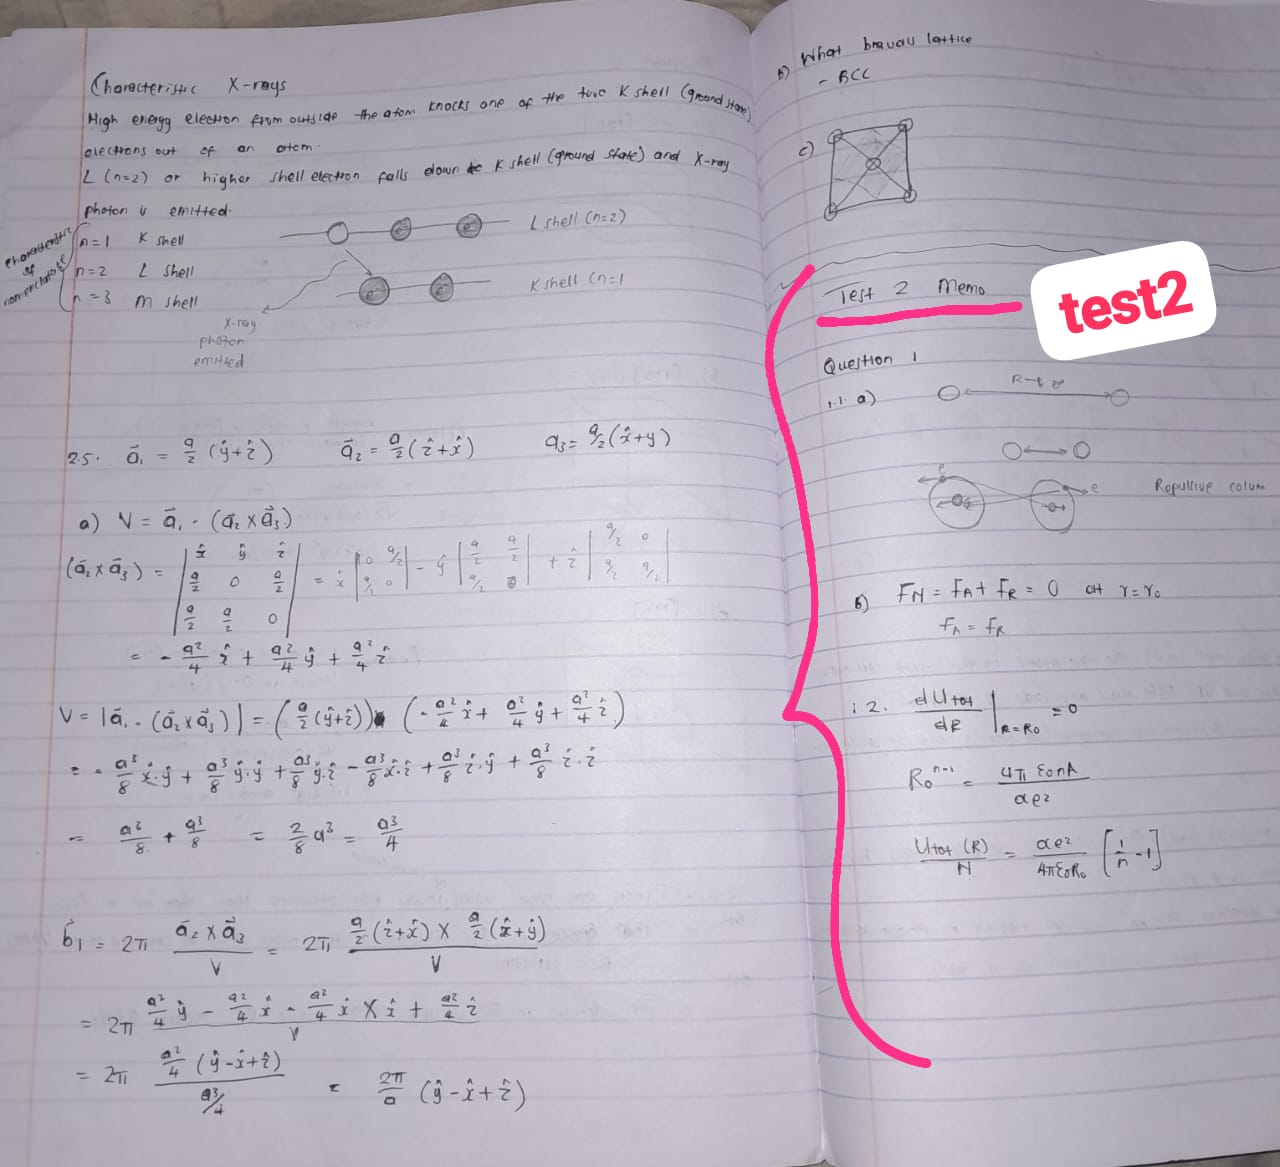 Characteristic X-rays
High energy electron from outside the atom knocks one of the two K shell (ground state)
electrons out of an atom.
L (n=2) or higher shell electron falls down to K shell (ground state) and X-ray
photon is emitted.
characteristic of nomenclature
n=1 K shell
n=2 L shell
n=3 M shell
L shell (n=2)
e⁻ e⁻
K shell (n=1
X-ray
photon
emitted
2.5. a⃗₁ = a/2 (ŷ+ẑ) a⃗₂ = a/2 (ẑ+x̂) a₃ = a/2 (x̂+y)
a) V = a⃗₁ · (a⃗₂ x a⃗₃)
(a⃗₂ x a⃗₃) = |x̂ ŷ ẑ; a/2 0 a/2; a/2 a/2 0| = x̂ |0 a/2; a/2 0| - ŷ |a/2 a/2; a/2 0| + ẑ |a/2 0; a/2 a/2|
= - a²/4 x̂ + a²/4 ŷ + a²/4 ẑ
V = |a⃗₁ · (a⃗₂ x a⃗₃)| = (a/2 (ŷ+ẑ)) · (- a²/4 x̂ + a²/4 ŷ + a²/4 ẑ)
= - a³/8 x̂·ŷ + a³/8 ŷ·ŷ + a³/8 ŷ·ẑ - a³/8 x̂·ẑ + a³/8 ẑ·ŷ + a³/8 ẑ·ẑ
= a³/8 + a³/8 = 2/8 a³ = a³/4
b⃗₁ = 2π a⃗₂ x a⃗₃ / V = 2π a/2 (ẑ+x̂) x a/2 (x̂+ŷ) / V
= 2π a²/4 ŷ - a²/4 x̂ - a²/4 x̂ x x̂ + a²/4 ẑ / V
= 2π a²/4 (ŷ-x̂+ẑ) / a³/4 = 2π/a (ŷ-x̂+ẑ)
b) What bravais lattice
- BCC
c)
Test 2 Memo
test2
Question 1
1.1. a)
e
e
Repulsive colum
b) FN = FA + FR = 0 at r=r₀
FA = FR
1.2. dUtot/dR |R=R₀ = 0
R₀ⁿ⁻¹ = 4π ε₀nA / αe²
Utot (R)/N = αe²/4πε₀R₀ [1/n - 1]